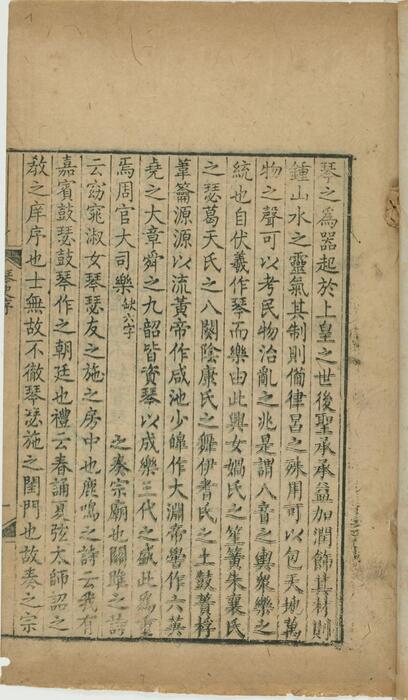 琴之爲器起於上皇之世後聖承承益加潤飾其材則
鍾山水之靈氣其制則備律呂之殊用可以包天地萬
物之聲可以考民物治亂之兆是謂八音之輿眾樂之
統也自伏羲作琴而樂由此興女媧氏之笙簧朱襄氏
之瑟葛天氏之八闋陰康氏之舞伊耆氏之土鼓蕢桴
葦籥源源以流黃帝作咸池少皞作大淵帝嚳作六英
堯之大章舜之九韶皆資琴以成樂三代之盛此爲
焉周官大司樂缺六字 之奏宗廟也關雎之詩
云窈窕淑女琴瑟友之施之房中也鹿鳴之詩云我有
嘉賓鼓瑟鼓琴作之朝廷也禮云春誦夏弦太師詔之
教之庠序也士無故不徹琴瑟施之閨門也故奏之宗